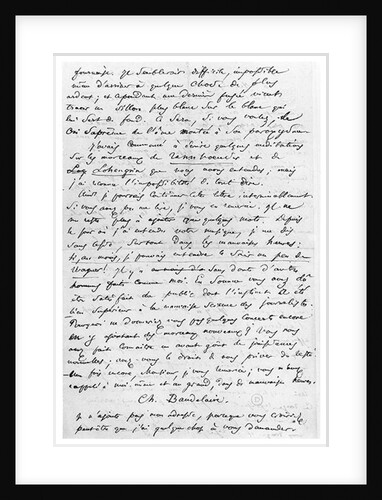 fournaise. Il semblerait difficile, impossible
même d'arriver à quelque chose de plus
ardent; et cependant une dernière fusée vient
tracer un sillon plus blanc sur le blanc qui
lui sert de fond. Ce sera, si vous voulez, le
cri suprême de l'âme montée à son paroxysme.
J'avais commencé à écrire quelques méditations
sur les morceaux de Tannhoeuser et de
Lohengrin que nous avons entendus; mais
j'ai reconnu l'impossibilité de tout dire.
Ainsi je pourrais continuer cette lettre interminablement.
Si vous avez pu me lire, je vous en remercie. Il ne
me reste plus à ajouter que quelques mots. Depuis
le jour où j'ai entendu votre musique, je me dis
sans cesse, surtout dans les mauvaises heures:
Si, au moins, je pouvais entendre ce soir un peu de
Wagner! Il y a sans doute d'autres
hommes faits comme moi. En somme vous avez dû
être satisfait du public dont l'instinct a été
bien supérieur à la mauvaise science des journalistes.
Pourquoi ne donneriez-vous pas quelques concerts encore
en y ajoutant des morceaux nouveaux? Vous nous
avez fait connaître un avant-goût de jouissances
nouvelles; avez-vous le droit de nous priver du reste
Une fois encore, Monsieur, je vous remercie; vous m'avez
rappelé à moi-même et au grand, dans de mauvaises heures.
Ch. Baudelaire.
Je n'ajoute pas mon adresse, parce que vous croiriez
peut-être que j'ai quelque chose à vous demander.